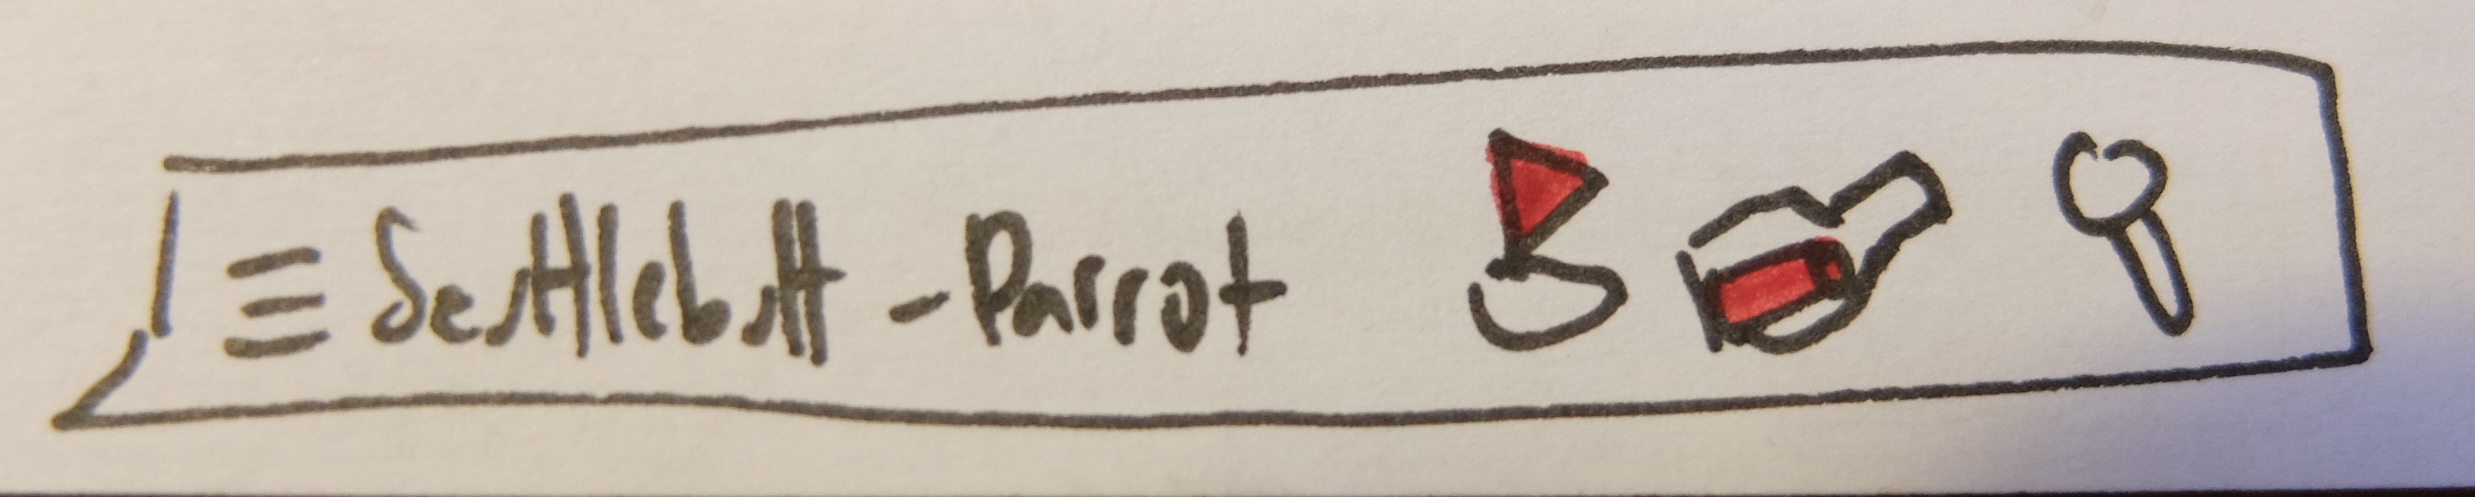 Scuttlebutt - Parrot